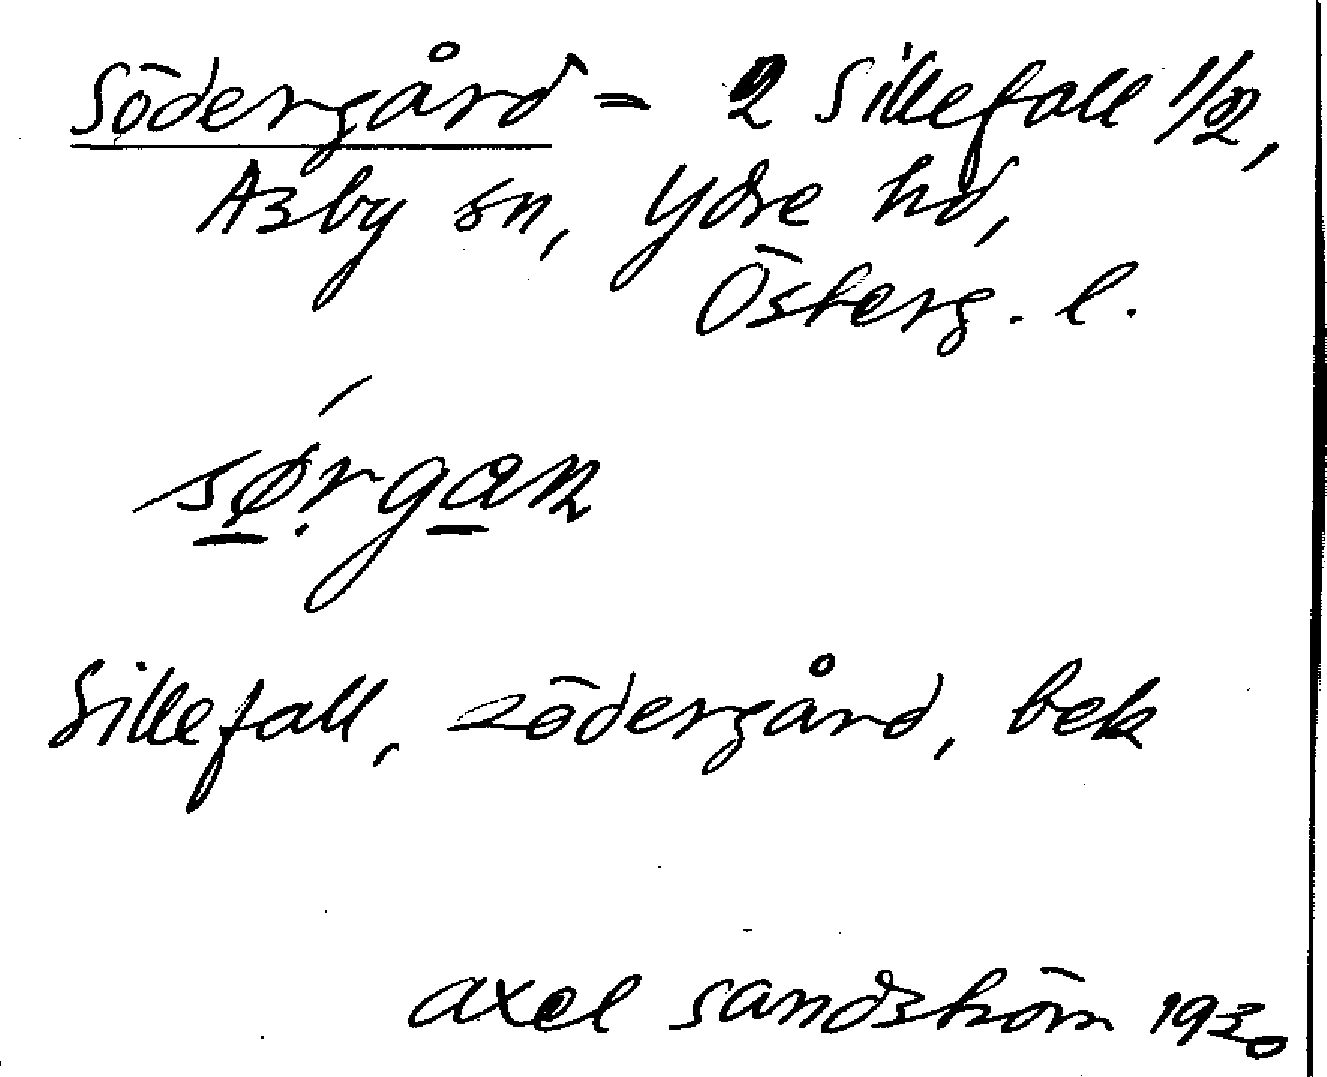 Södergård = 2 Sillefall 1/2,
Asby sn, Ydre hd,
Österg. l.
sørgan
Sillefall, södergård, bek
axel sandström 1930